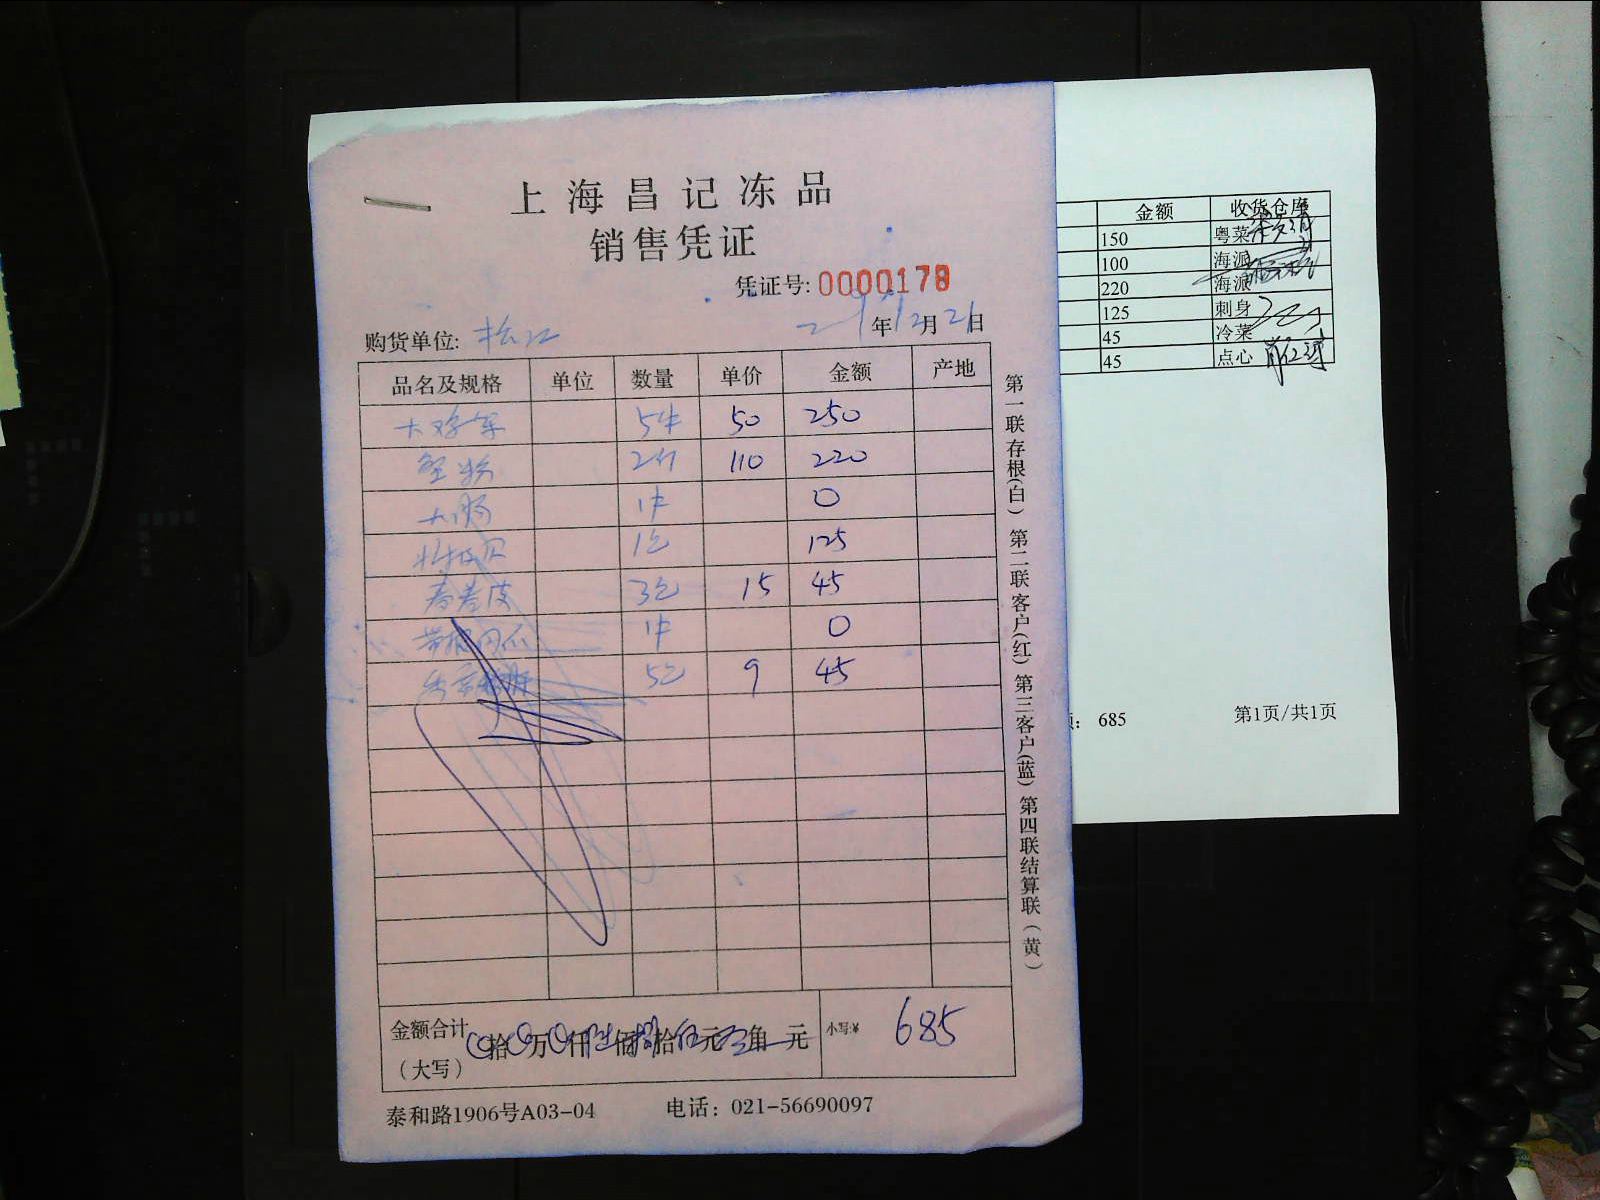 上海昌记冻品
销售凭证
凭证号: 0000178
购货单位: 松江 年12月21日
品名及规格 单位 数量 单价 金额 产地
5件 50 250
蟹粉 110 220
大肠 1件 0
1包 125
春卷皮 3包 15 45
1件 0
5包 9 45
第一联存根(白) 第二联客户(红) 第三客户(蓝) 第四联结算联(黄)
金额合计 拾 万 仟 陆佰捌拾伍元 角 元 小写:¥ 685
(大写)
泰和路1906号A03-04 电话: 021-56690097
金额 收货仓库
150 粤菜
100 海派
220 海派
125 刺身
45 冷菜
45 点心
: 685 第1页/共1页